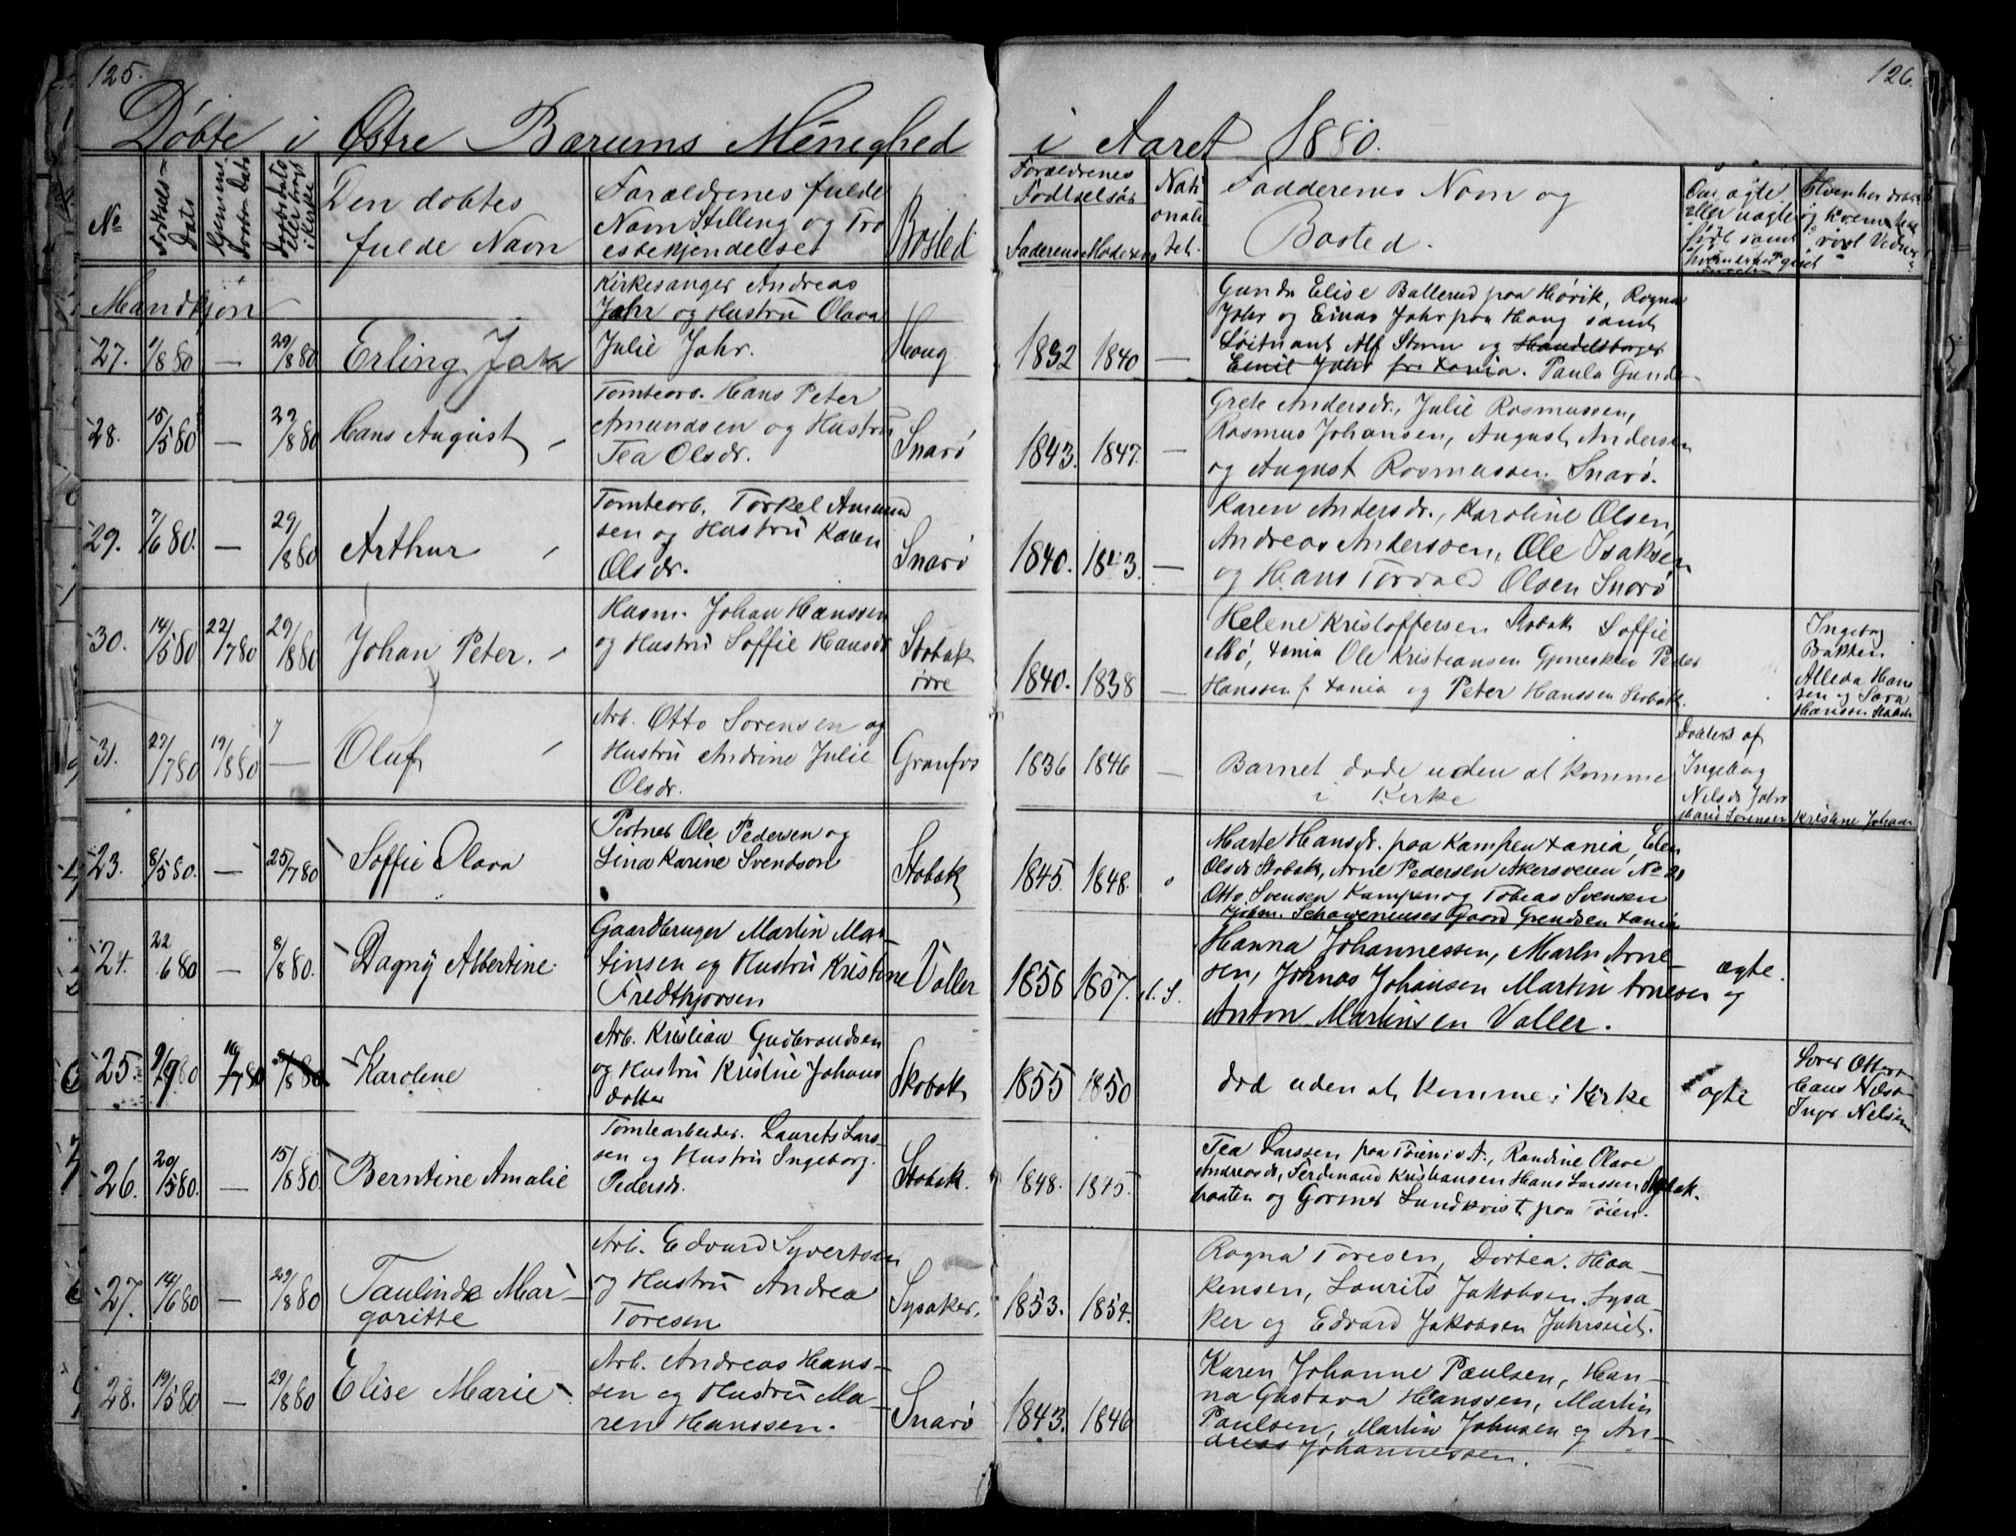 125.
126.
Döbte i Østre Bærums Menighed i Aaret 1880.
No
Fødsels-Dato
Daabsdato
Den döbtes
fulde Navn
Forældrenes fulde
Navn Stilling og Tro
esbekjendelse
Bosted
Forældrenes
Födselsår
Faderens Moderens
Nati
onali
tet.
Fadderenes Navn og
Bosted.
Om ægte
eller uægte
födt samt
Mandkjön
27. 1/8 80 — 29/8 80 Erling Jahr
Kirkesanger Andreas
Jahr og Hustru Olava
Julie Jahr.
Houg
1832 1840 —
Gunda Elise Ballerud paa Hövik, Ragna
Jahr og Einar Jahr paa Haug samt
Löitnant Alf Sturm og Handelsborger
Emil Jahr fra Xania. Paula Gunde-
28. 15/5 80 — 29/8 80 Hans August
Tomtearb. Hans Peter
Amundsen og Hustru
Tea Olsdr.
Snarö
1843. 1847. —
Grete Andersdr., Julie Rasmussen,
Rasmus Johansen, August Andersen
og August Rasmussen. Snarö.
29. 7/6 80. — 29/8 80 Arthur
Tomtearb. Torkel Amund
sen og Hustru Karen
Olsdr.
Snarö
1840. 1843. —
Karen Andersdr., Karoline Olsen,
Andreas Anderssen, Ole Isaksen
og Hans Torvald Olsen Snarö
30. 14/5 80 22/7 80 29/8 80 Johan Peter.
Husm. Johan Hanssen
og Hustru Soffie Hansdr
Stabæk
övre
1840. 1838 —
Helene Kristoffersen Stabæk Soffie
Mö, Xania Ole Kristiansen Peder
Hanssen f. Xania og Peter Hanssen Stabæk.
Ingeborg
Bakken
Alleda Hans
sen og Sara
Hanssen Stabæk
31. 27/7 80 19/8 80 — Oluf
Arb. Otto Sörensen og
Hustru Andrine Julie
Olsdr.
Granfos
1836 1846 —
Barnet döde uden at komme
i Kirke
Döbt af
Ingeborg
Nilsdr Jahr
Marie Sörensen Kristine Johan
23. 8/5 80. — 25/7 80 Soffie Olava
Ole Pedersen og
Lina Karine Svendsen
Stabæk
1845. 1848.
Marte Hansdr. paa Kampen Xania, Elen
Olsdr Stabæk, Arne Pedersen Akersveien No 21
Otto Svensen Kampen og Tobias Svensen
Gaard Grendsen Xania
24. 22/6 80 — 8/8 80. Dagny Albertine.
Gaardbruger Martin Mar
tinsen og Hustru Kristine
Fredthjovsen
Voller
1856 1857.
Hanna Johannessen, Martin Arne-
sen, Johnas Johansen Martin Arnesen og
Anton Martinsen Voller.
ægte.
25. 9/7 80 16/7 80 8/8 80 Karoline
Arb. Kristian Gudbrandsen
og Hustru Kristine Johans
datter
Stabæk
1855 1850
död uden at komme i Kirke
ægte
Hans
Inga Nelsen
26. 20/5 80. — 15/8 80 Berntine Amalie
Tomtearbeider. Laurets Lars-
sen og Hustru Ingeborg.
Pedersdr.
Stabæk.
1848. 1845.
Tea Larssen paa Töien, Randine Olava
Andreasdr, Ferdinand Kristiansen Hans Larssen Stabæk-
braaten og Gormer Lundkvist paa Töien.
27. 14/6 80 — 29/8 80 Taulinde Mar-
garitte
Arb. Edvard Syvertsen
og Hustru Andrea
Toresen
Lysaker.
1853. 1854.
Ragna Toresen, Dortea. Haa-
kensen, Laurits Jakobsen. Lysa-
ker og Edvard Jakobsen Jahrseiet.
28. 19/5 80 — 29/8 80 Elise Marie
Arb. Andreas Hans-
sen og Hustru Ma-
ren Hanssen.
Snarö
1843. 1846
Karen Johanne Paulsen, Han-
na Gustava Hanssen, Martin
Paulsen, Martin Johnsen og An-
dreas Johannessen.